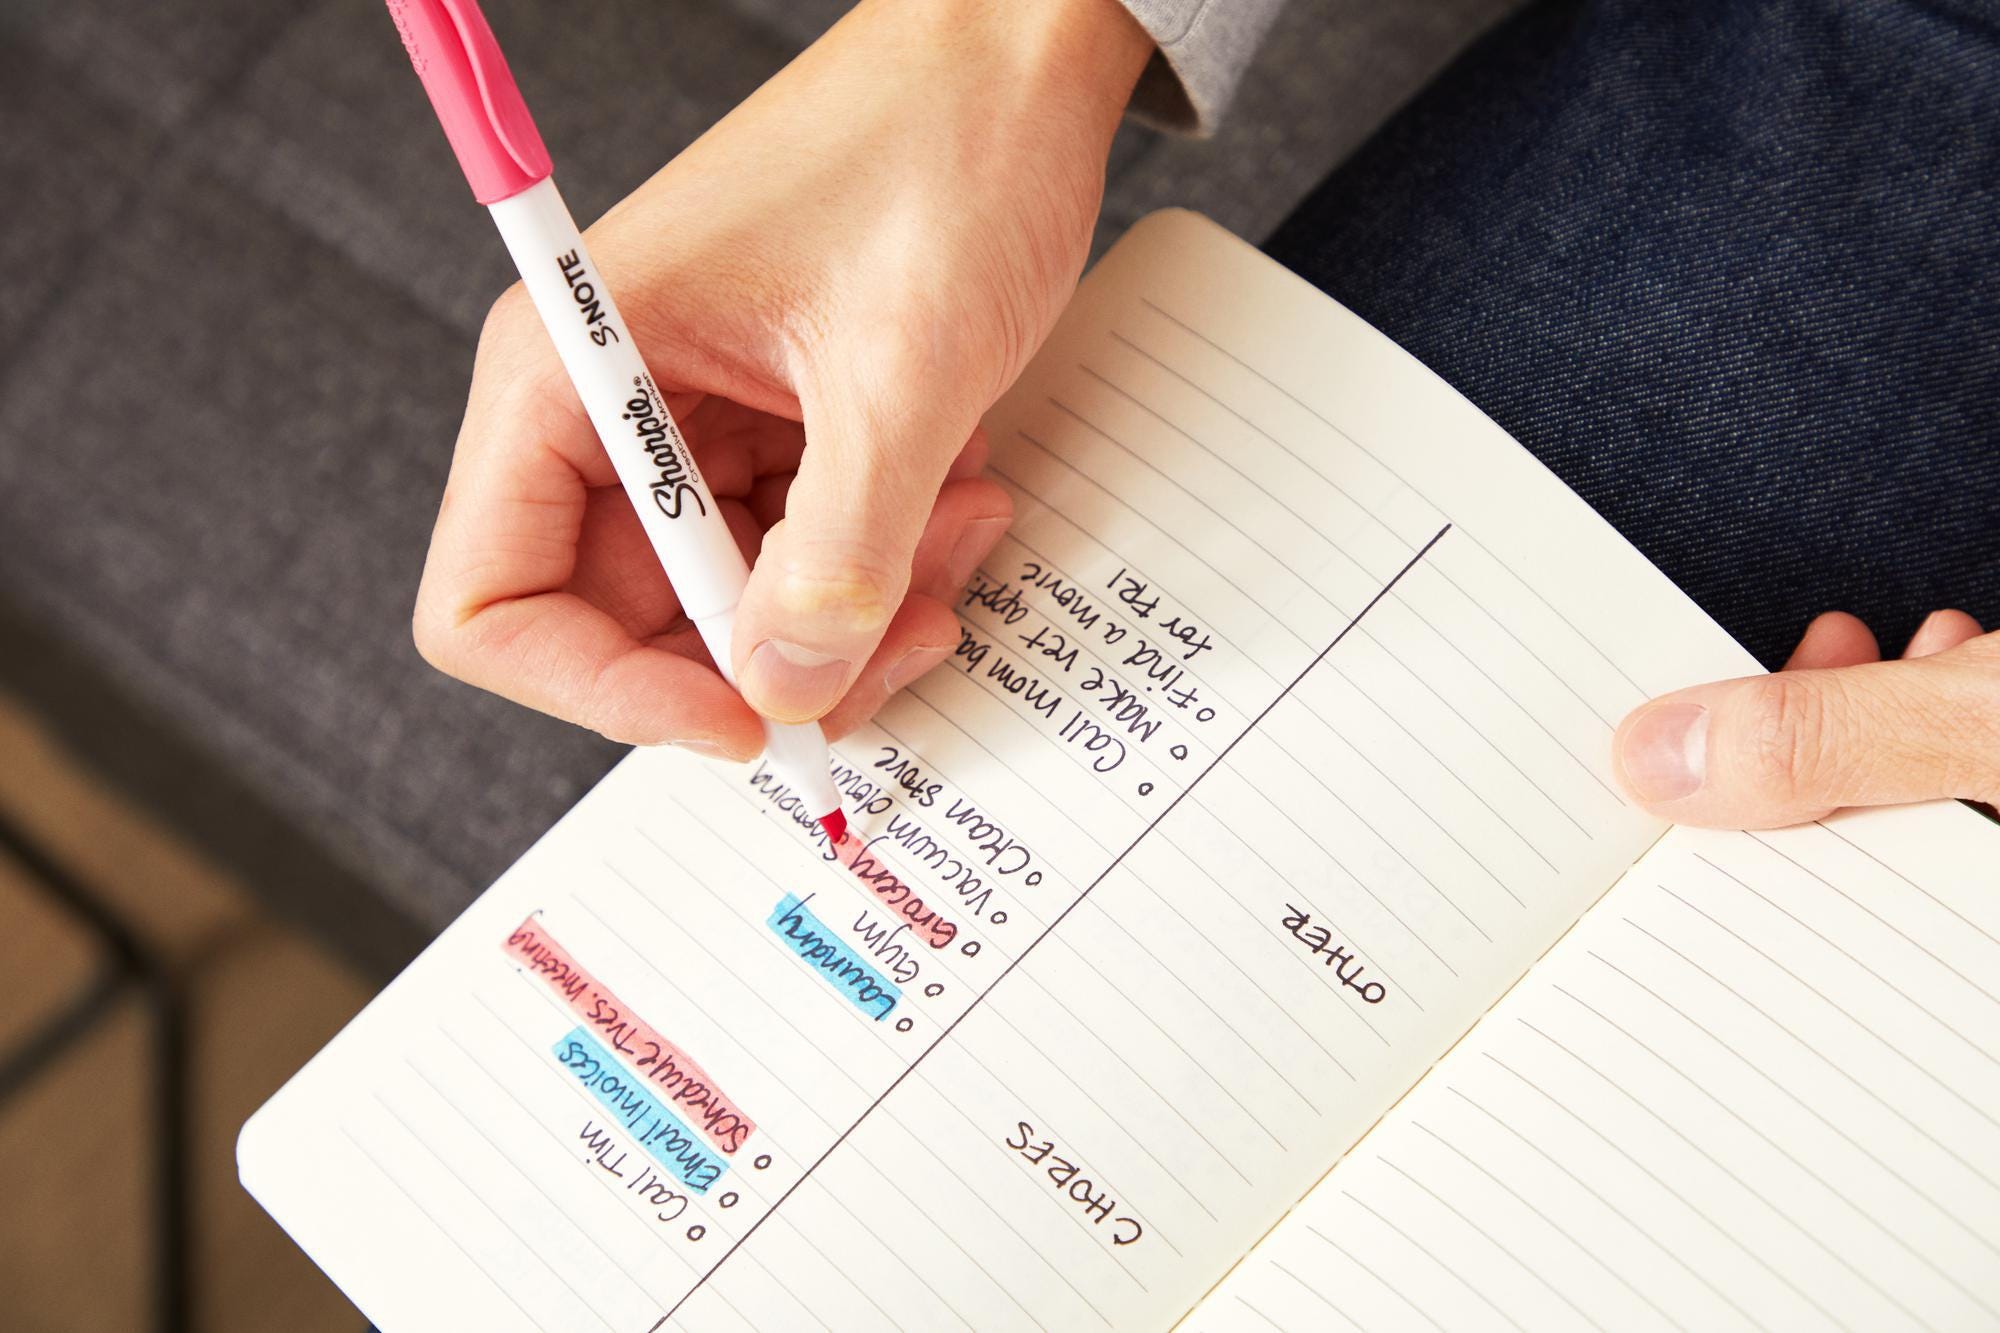 Sharpie®
Creative Marker
S·NOTE
Call Tim
Email Invoices
Schedule Tues. meeting
CHORES
Laundry
Gym
Grocery Shopping
Vacuum down
Clean stove
OTHER
Call mom
Make vet appt.
Find a movie
for FRI